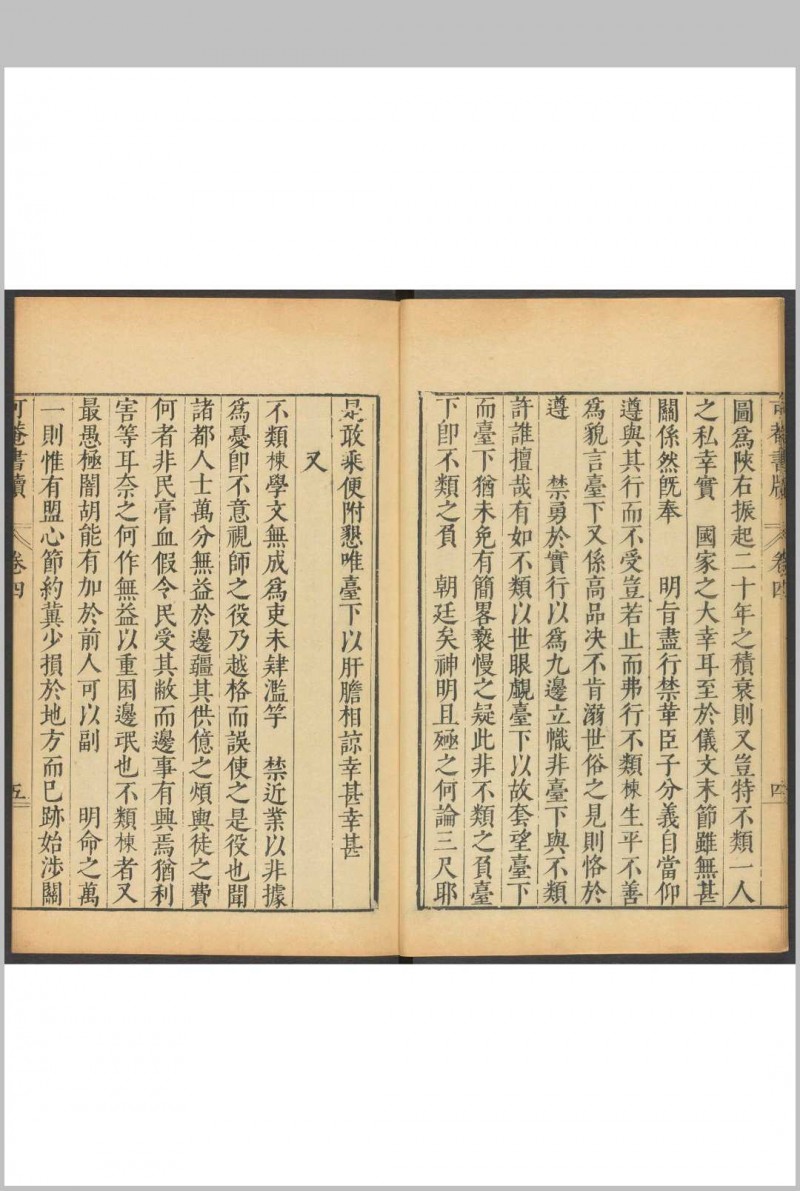 圖爲陝右振起二十年之積衰則又豈特不類一人
之私幸實　國家之大幸耳至於儀文末節雖無甚
關係然旣奉　　明旨盡行禁革臣子分義自當仰
遵與其行而不受豈若止而弗行不類棟生平不善
爲貌言臺下又係高品决不肯溺世俗之見則恪於
遵　　禁勇於實行以爲九邊立幟非臺下與不類
許誰擅哉有如不類以世眼覷臺下以故套望臺下
而臺下猶未免有簡畧褻慢之疑此非不類之負臺
下卽不類之負　朝廷矣神明且殛之何論三尺耶
書牘　卷四　四
是敢乘便附懇唯臺下以肝膽相諒幸甚幸甚
又
不類棟學文無成爲吏未肄濫竽　禁近業以非據
爲憂卽不意視師之役乃越格而誤使之是役也聞
諸都人士萬分無益於邊疆其供億之煩輿徒之費
何者非民膏血假令民受其敝而邊事有興焉猶利
害等耳奈之何作無益以重困邊氓也不類棟者又
最愚極闇胡能有加於前人可以副　　明命之萬
一則惟有盟心節約冀少損於地方而已跡始涉關
可菴書牘　卷四　五